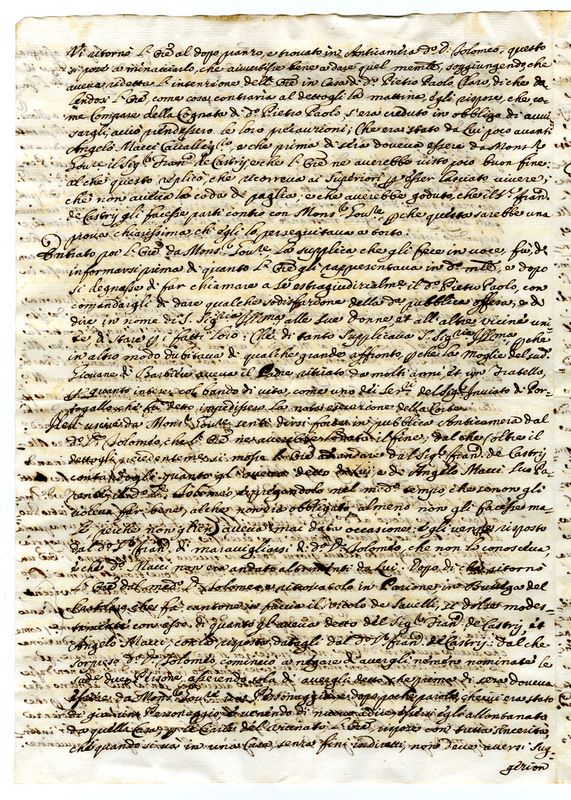 Vi ritornò l. Gio: al dopo pranzo, e trovato in Anticamera d. D. Colomeo, questo
si pose a minacciarlo, che avvertisse bene a dare quel meml., soggiungendo, che
aveva ridetta l'intenzione dell. Gio: in Casa di D. Pietro Paolo Claro, di che do-
lendosi l. Gio: come cosa contraria al dettogli la mattina, egli rispose, che co-
me Compare della Cognata di D. Pietro Paolo, s'era creduto in obbligo di avvi-
sargli, acciò prendessero le loro precauzioni; Che era stato da lui poco avanti
Angelo Macci e che prima di sera doveva essere da Mons.
il Sig. Fran. de Castrij, e che l. Gio: ne averebbe visto poco buon fine;
al che questo replicò, che ricorreva ai Superiori p esser lasciato vivere;
che non aveva la coda di paglia, e che averebbe goduto, che il S. Fran.
de Castrij gli facesse parti contro con Mons. p che questa sarebbe una
prova chiarissima che egli lo perseguitava a torto.
Entrato poi l. Gio: da Mons. La supplica che gli fece in voce fu, di
informarsi prima di quanto l. Gio: gli rappresentava in d. mle, e dopo
si degnasse di far chiamare a se estragiudizialm. il D. Pietro Paolo, con
comandargli di dare qualche sodisfazione della d. pubblica offesa, e di
dire in nome di S. Sig. Illma alle sue Donne et all'altre vicine uni-
te di stare p i fatti loro: Che di tanto supplicava S. Sig. Illma p che
in altro modo dubitava di qualche grande affronto, p che la Moglie del sud.
Giovane di Barbiere aveva il Padre ritirato da molti anni, et un fratello,
p quanto intese, col bando di vita, come uno dei Ser. del Sig. Inviato di Por-
togallo, che fu detto impedissero la nota esecuzione della Corte.
Nell'uscire da Mons. sentì dirsi forte in pubblica Anticamera dal
d. D. Colomeo, che l. Gio: ne averebbe veduto il fine, dal che oltre il
dettogli precedentemente si mosse l. Gio: d'andare dal Sig. Fran. de Castrij
contandogli quanto gli aveva detto da lui, e da Angelo Macci suo Pa-
rente il d. D. Colomeo, e pregandolo nel med. tempo, che se non gli
voleva far bene, al che non era obbligato almeno non gli facesse ma-
le, perche non glien'aveva mai data occasione: e gli venne risposto
dal d. S. Fran. di maravigliarsi di d. D. Colomeo, che non lo conosceva
e che d. Macci non era andato altrimenti da lui. Dopo di che ritornò
l. Gio: dal med. D. Colomeo, e ritrovatolo in Parione in Bottega del
che fa cantone in faccia il Vicolo de Savelli, si dolse modes-
tamente con esso, di quanto gl'aveva detto del Sig. Fran. de Castrij, et
Angelo Macci con la risposta datagli dal d. S. Fran. de Castrij: dal che
sorpreso d. D. Colomeo cominciò a negare d'avergli nemeno nominate le
sud. due Persone, asserendo solo d'avergli detto, che prima di sera doveva
essere da Mons. un Personaggio, e dopo poche parole, che vi era stato
di già un Personaggio, e venendo di nuovo a dire, che si egli allontanato
da quella Casa p la Carità del vicinato. l. Gio: rispose con tutta sincerità,
che quando si va in una Casa, senza fini indiretti, non deve aversi sug-
gezion